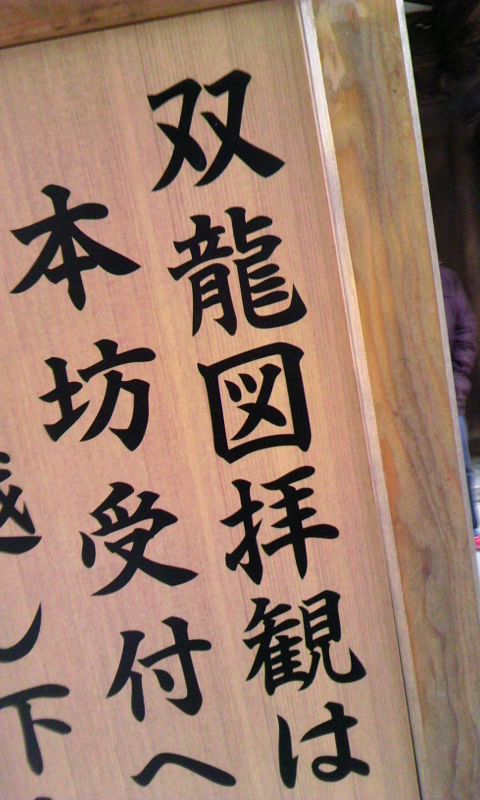 双龍図拝観は
本坊受付へ
越し下